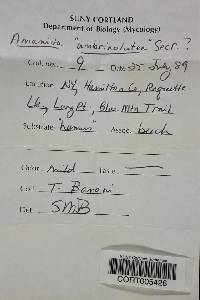 SUNY CORTLAND
Department of Biology (Mycology)
Amanita "umbrinolutea" Secr. ?
Coll. no. 9 Date 25 July 89
Location NY, Hamilton Co, Raquette
Lk, Long Pt, Blue Mtn Trail
Substrate "humus" Assoc. beech
Odor mild Taste
Coll. T. Baroni
Det. SMB
CORT005426